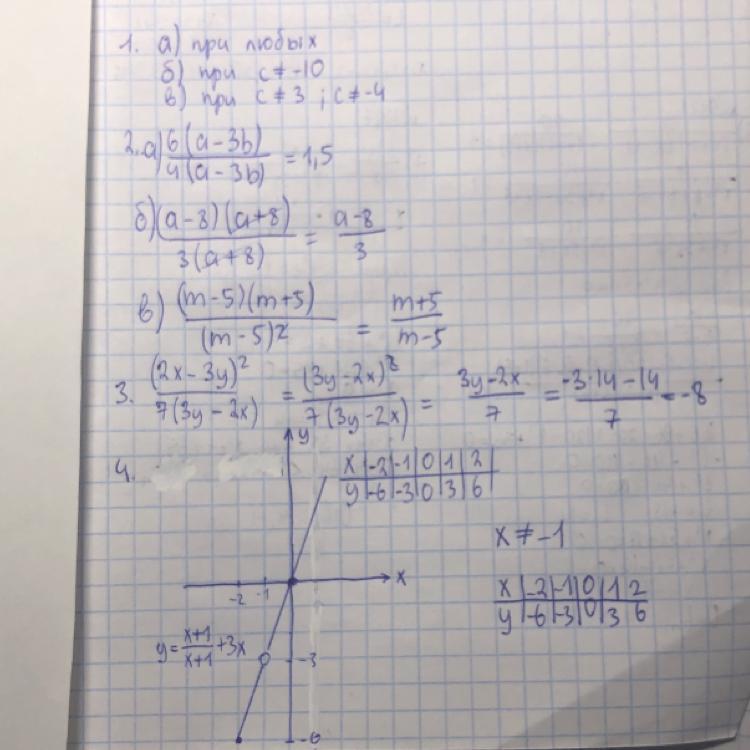 1. а) при любых
б) при c ≠ -10
в) при c ≠ 3 ; c ≠ -4
2. а) 6(a-3b)/4(a-3b) = 1,5
б) (a-8)(a+8)/3(a+8) = a-8/3
в) (m-5)(m+5)/(m-5)² = m+5/m-5
3. (2x-3y)²/7(3y-2x) = (3y-2x)²/7(3y-2x) = 3y-2x/7 = -3·14-14/7 = -8
4.
y
x | -2 | -1 | 0 | 1 | 2
y | -6 | -3 | 0 | 3 | 6
x ≠ -1
x
-2 -1
x | -2 | -1 | 0 | 1 | 2
y | -6 | -3 | 0 | 3 | 6
y = x+1/x+1 + 3x
-3
-6